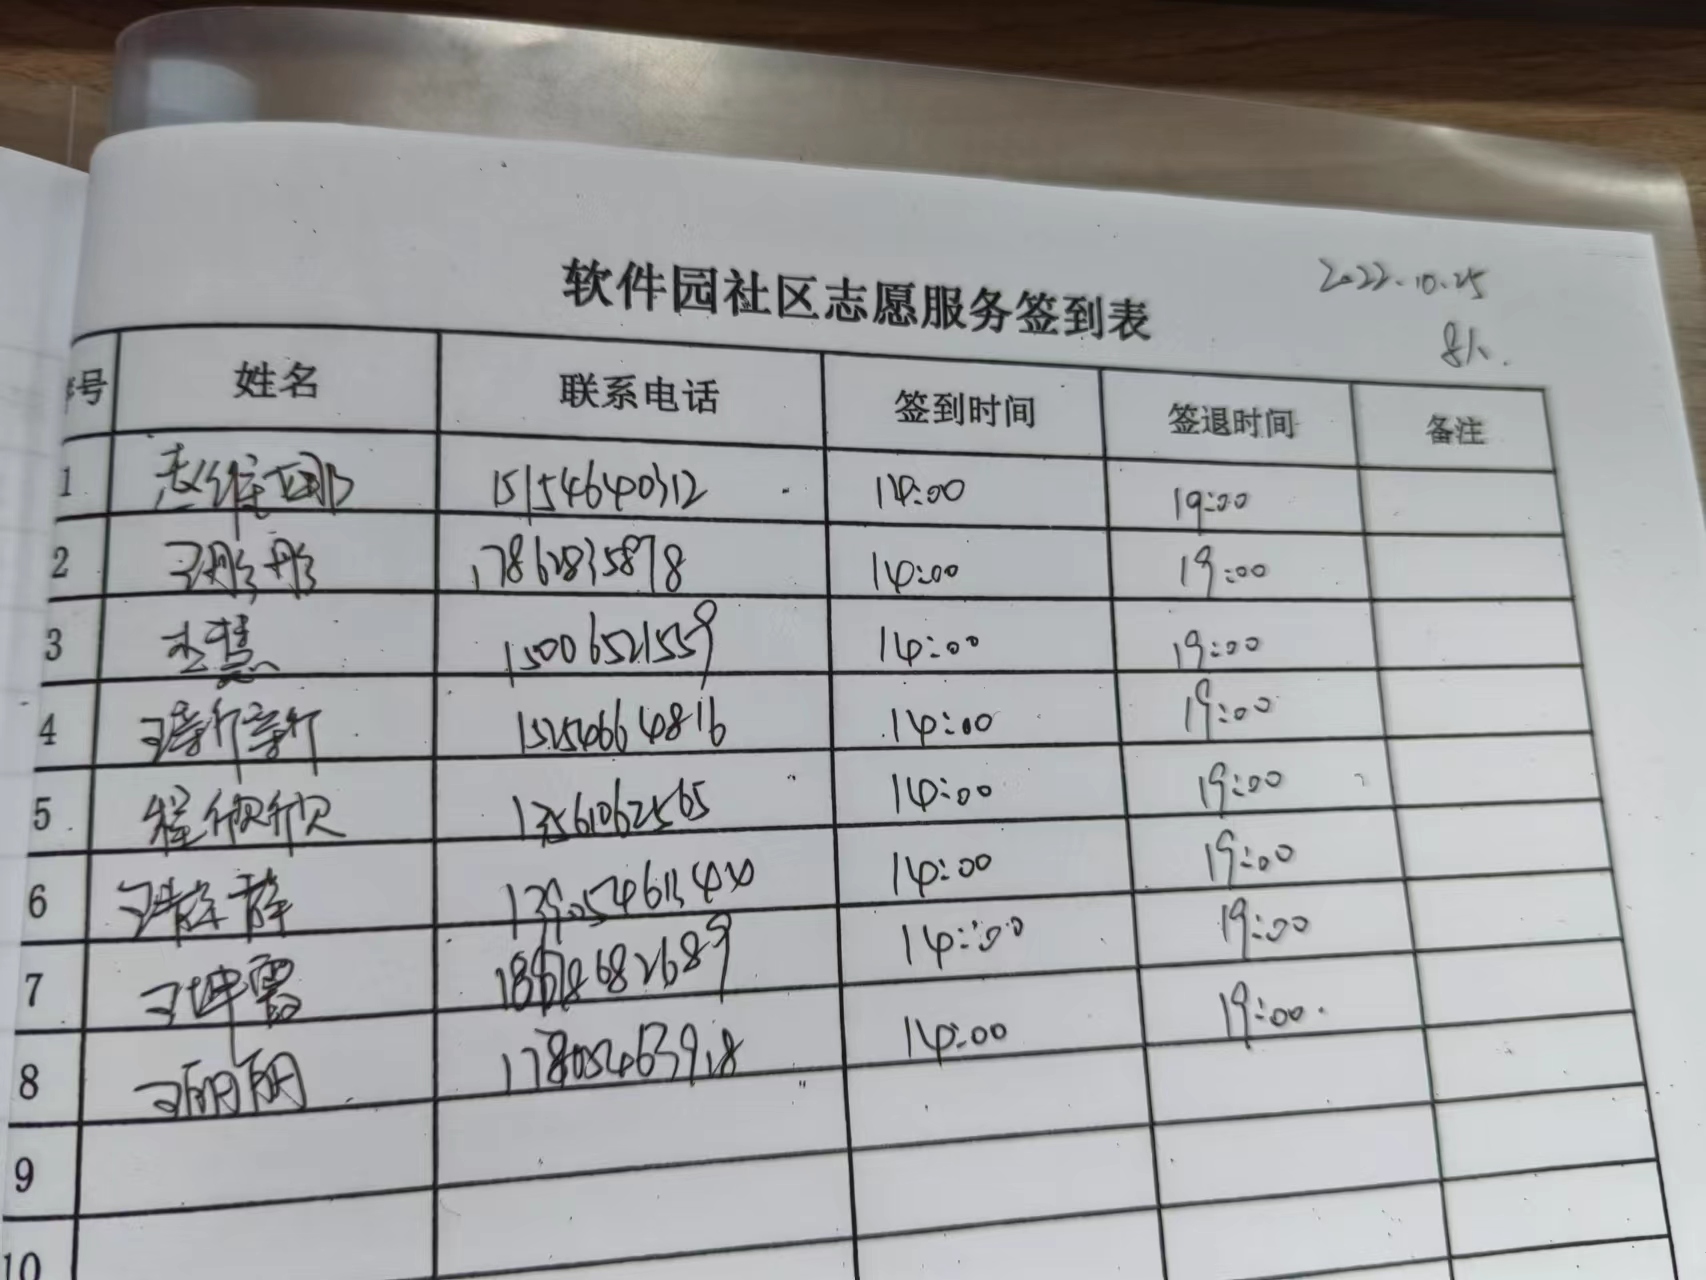 软件园社区志愿服务签到表
2022.10.25
8人.
序号 姓名 联系电话 签到时间 签退时间 备注
1 15154640312 14:00 19:00
2 王彤彤 17862835878 14:00 19:00
3 李慧 15006521559 14:00 19:00
4 王新新 15254664816 14:00 19:00
5 程欣欣 13561062565 14:00 19:00
6 王静静 14:00 19:00
7 王坤霞 14:00 19:00
8 王丽丽 14:00 19:00
9
10